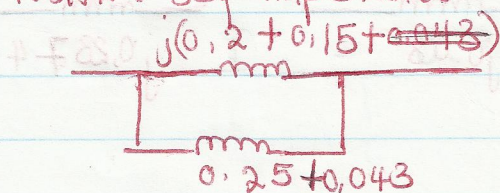 j(0,2+0,15+0,043)
0.25+0,043